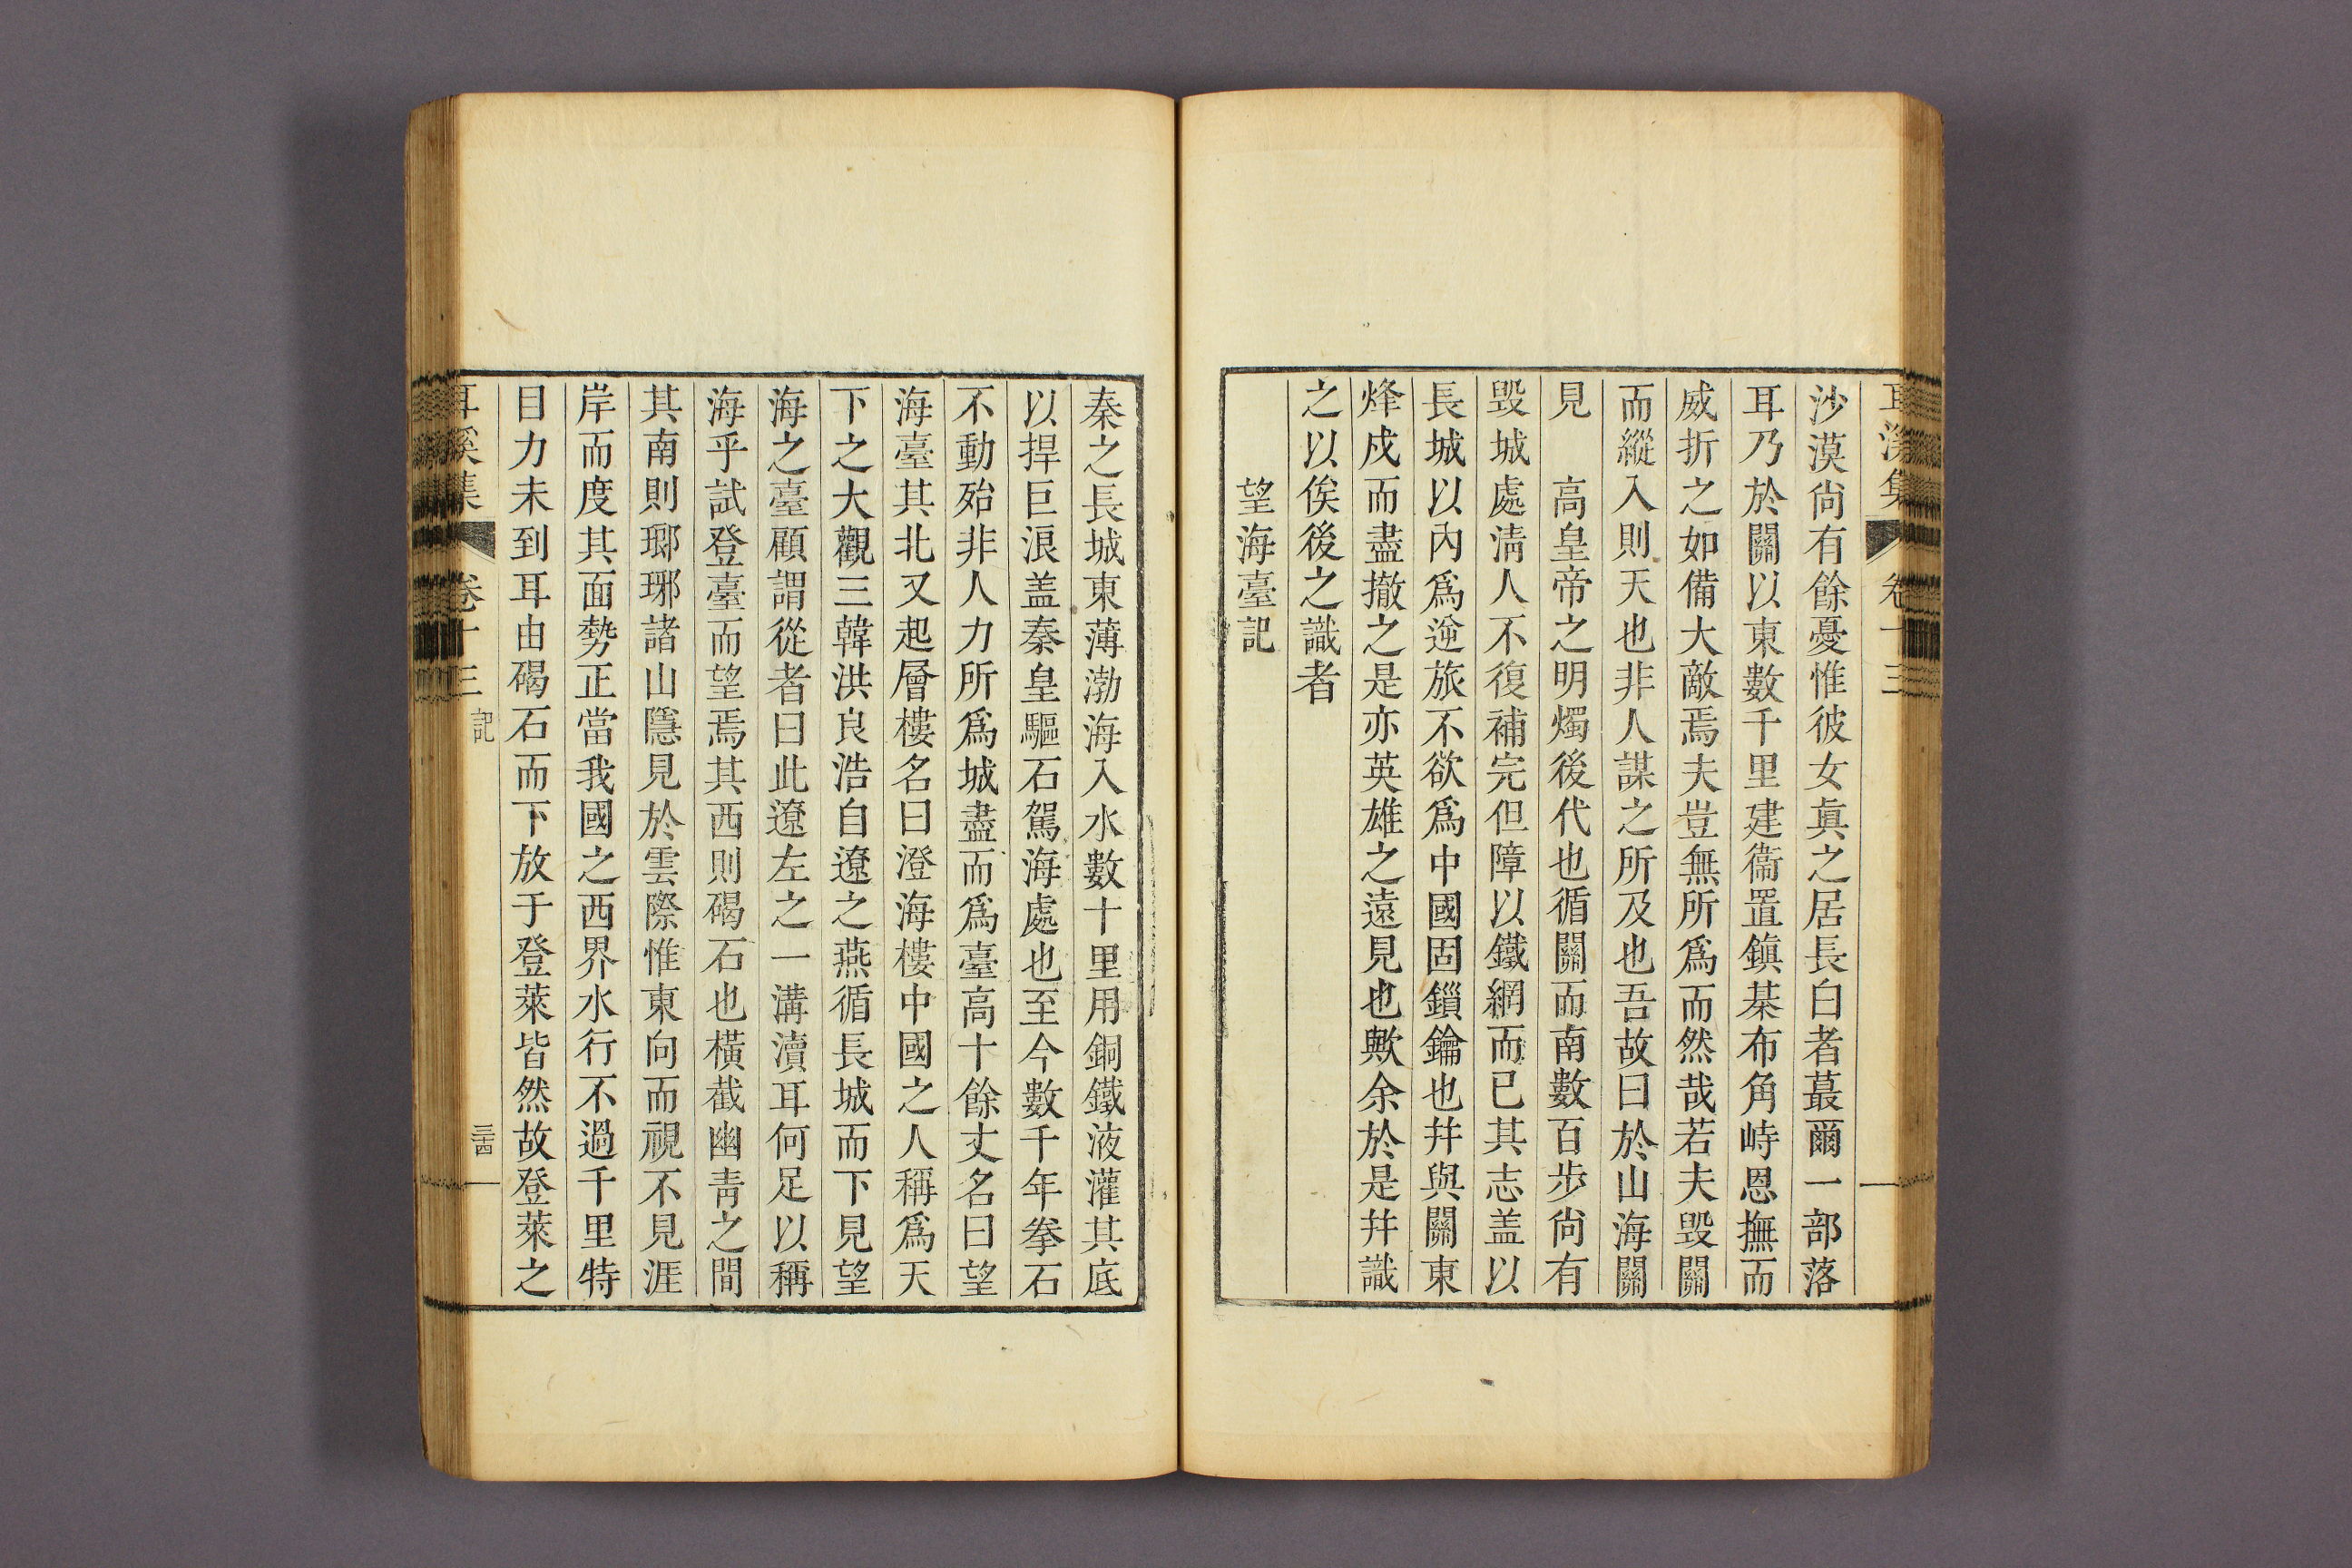 耳溪集 卷十三
沙漠尙有餘憂惟彼女眞之居長白者蕞爾一部落
耳乃於關以東數千里建衞置鎭棊布角峙恩撫而
威折之如備大敵焉夫豈無所爲而然哉若夫毁關
而縱入則天也非人謀之所及也吾故曰於山海關
見 高皇帝之明燭後代也循關而南數百步尙有
毁城處淸人不復補完但障以鐵網而已其志盖以
長城以內爲逆旅不欲爲中國固鎻鑰也幷與關東
烽戍而盡撤之是亦英雄之遠見也歟余於是幷識
之以俟後之識者
望海臺記
秦之長城東薄渤海入水數十里用銅鐵液灌其底
以捍巨浪盖秦皇驅石駕海處也至今數千年拳石
不動殆非人力所爲城盡而爲臺高十餘丈名曰望
海臺其北又起層樓名曰澄海樓中國之人稱爲天
下之大觀三韓洪良浩自遼之燕循長城而下見望
海之臺顧謂從者曰此遼左之一溝瀆耳何足以稱
海乎試登臺而望焉其西則碣石也橫截幽靑之間
其南則瑯琊諸山隱見於雲際惟東向而視不見涯
岸而度其面勢正當我國之西界水行不過千里特
目力未到耳由碣石而下放于登萊皆然故登萊之
耳溪集 卷十三 記 三十四